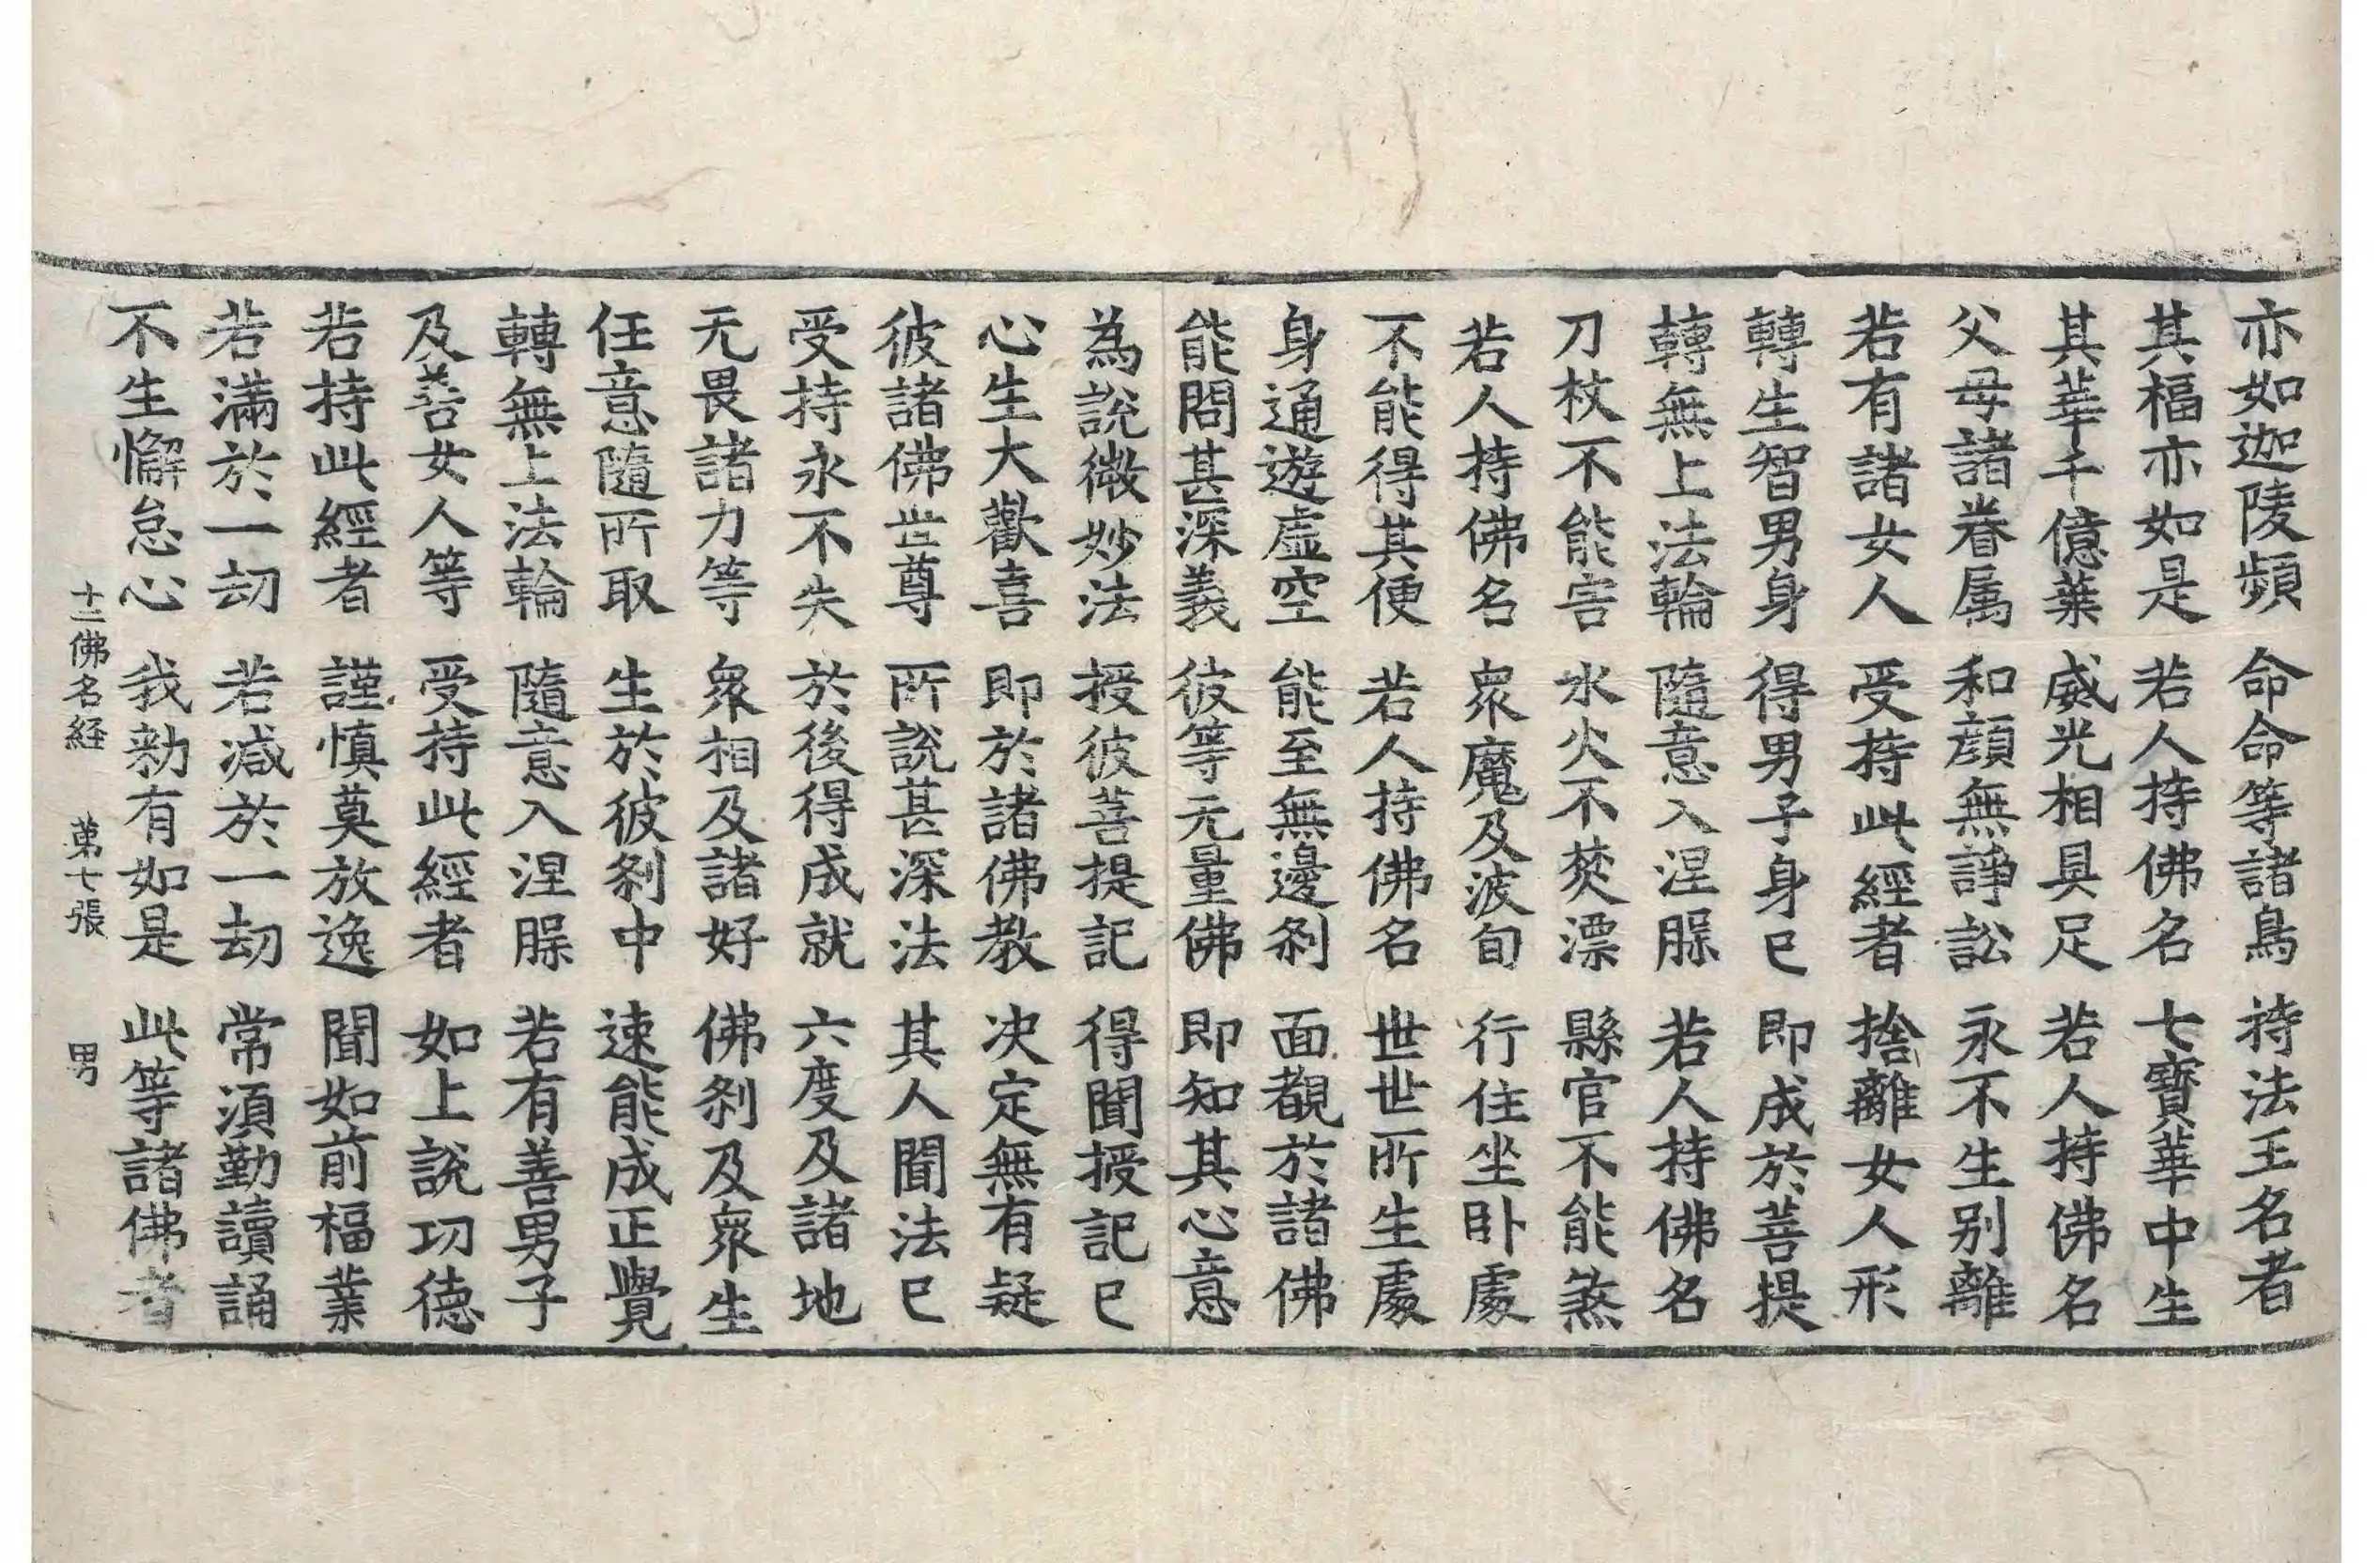 亦如迦陵頻 命命等諸鳥 持法王名者
其福亦如是 若人持佛名 七寶華中生
其華千億葉 威光相具足 若人持佛名
父母諸眷属 和顔無諍訟 永不生别離
若有諸女人 受持此經者 捨離女人形
轉生智男身 得男子身已 即成於菩提
轉無上法輪 隨意入涅脲 若人持佛名
刀杖不能害 水火不焚漂 縣官不能煞
若人持佛名 衆魔及波旬 行住坐卧處
不能得其便 若人持佛名 世世所生處
身通遊虚空 能至無邊刹 面覩於諸佛
能問甚深義 彼等无量佛 即知其心意
為説微妙法 授彼菩提記 得聞授記已
心生大歡喜 即於諸佛教 决定無有疑
彼諸佛世尊 所説甚深法 其人聞法已
受持永不失 於後得成就 六度及諸地
无畏諸力等 衆相及諸好 佛刹及衆生
任意隨所取 生於彼刹中 速能成正覺
轉無上法輪 隨意入涅脲 若有善男子
及善女人等 受持此經者 如上説功德
若持此經者 謹慎莫放逸 聞如前福業
若滿於一劫 若减於一劫 常須勤讀誦
不生懈怠心 我勑有如是 此等諸佛者
十二佛名経 苐七張 男